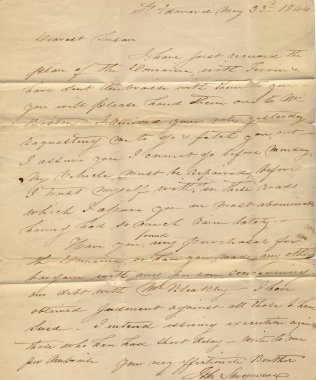 St Edward May 23rd 1844
Dearest Susan
I have just received the
plan of the Domaine, with
have sent them with them to you
you will please hand them over to Mr
I received your note yesterday
requesting me to go & fetch you, but
I assure you I cannot go before Monday
My Vehicle must be repaired before
I trust myself with in these roads
which I assure you are most abominable
having had so much rain lately.
found
Have you, any purchaser for
the Domaine, or have you made any other
bargain with any person concerning
our debt with Mr Bleakley - I have
obtained Judgment against all those I have
sued - I intend issuing execution against
those who have short delay - write to me
per
your very affectionate Brother
John